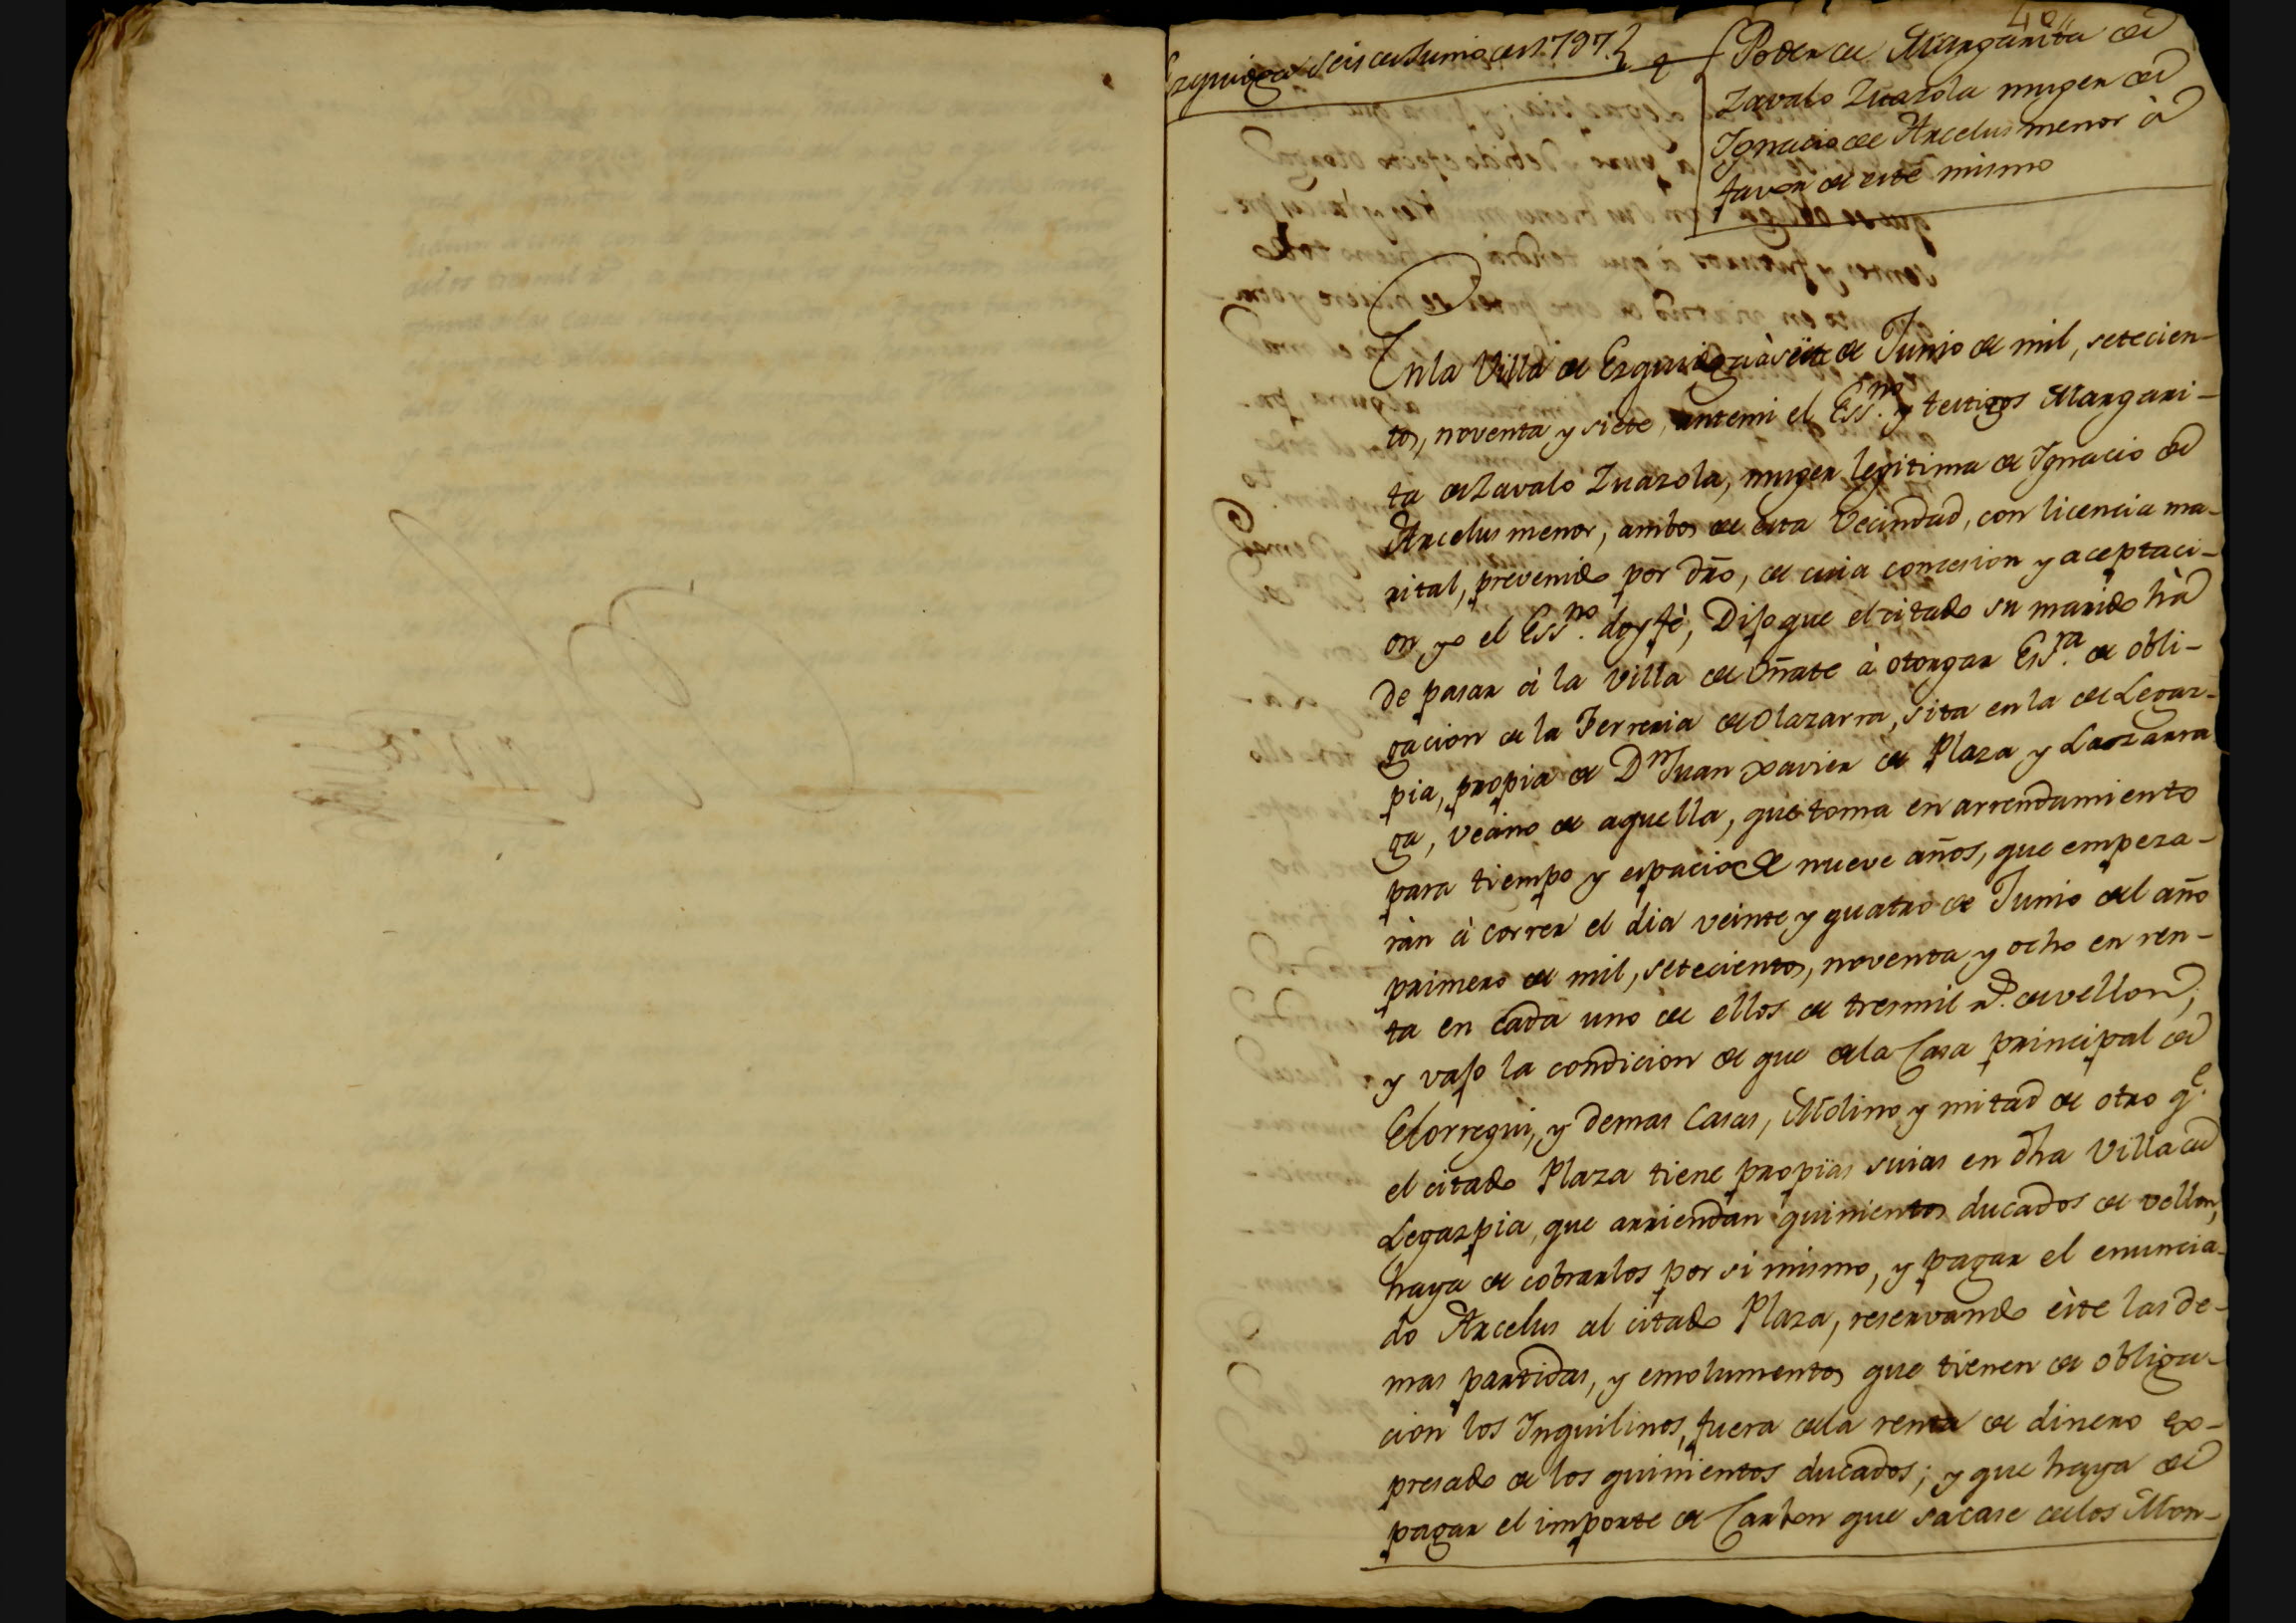 40
Ezquioga Seis de Junio de 1797.
Poder de Margarita de
Zavalo Zuazola muger de
Ygnacio de Arcelus menor à
favor de este mismo
En la Villa de Ezquioga à siete de Junio de mil, setecien-
tos, noventa y siete, ante mi el Ess.no y testigos Margari-
ta de Zavalo Zuazola, muger legitima de Ygnacio de
Arcelus menor, ambos de esta Vecindad, con licencia ma-
rital, prevenido por dro, de cuia concesion y aceptaci-
on yo el Ess.no doy fè, Dijo que el citado su marido hà
de pasar à la Villa de Oñate à otorgar Ess.ra de obli-
gacion de la Ferreria de Olazarra, sita en la de Legaz-
pia, propia de Dn Juan Xavier de Plaza y Lazarra
ga, vecino de aquella, que toma en arrendamiento
para tiempo y espacio de nueve años, que empeza-
ràn à correr el dia veinte y quatro de Junio del año
primero de mil, setecientos, noventa y ocho en ren-
ta en cada uno de ellos de tresmil rs. de vellon,
y vajo la condicion de que de la Casa principal de
Elorregui, y demas Casas, Molino y mitad de otro q.e
el citado Plaza tiene propias suias en dha Villa de
Legazpia, que arriendan quinientos ducados de vellon,
haya de cobrarlos por si mismo, y pagar el enuncia-
do Arcelus al citado Plaza, reservando èste las de-
mas partidas, y emolumentos que tienen de obliga-
cion los Ynquilinos, fuera de la renta de dinero ex-
presado de los quinientos ducados; y que haya de
pagar el importe de Carbon que sacare de los Mon-